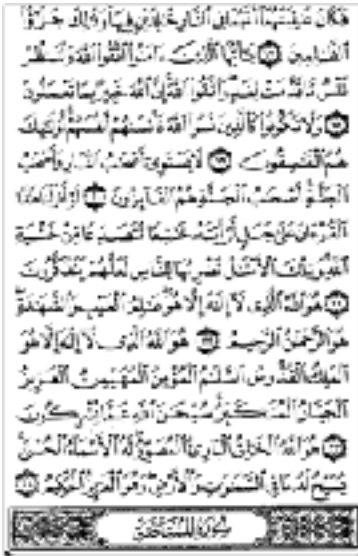 فَكَانَ عَٰقِبَتَهُمَآ أَنَّهُمَا فِى ٱلنَّارِ خَٰلِدَيْنِ فِيهَا وَذَٰلِكَ جَزَٰٓؤُا۟
ٱلظَّٰلِمِينَ ١٧ يَٰٓأَيُّهَا ٱلَّذِينَ ءَامَنُوا۟ ٱتَّقُوا۟ ٱللَّهَ وَلْتَنظُرْ
نَفْسٌ مَّا قَدَّمَتْ لِغَدٍ وَٱتَّقُوا۟ ٱللَّهَ إِنَّ ٱللَّهَ خَبِيرٌۢ بِمَا تَعْمَلُونَ
١٨ وَلَا تَكُونُوا۟ كَٱلَّذِينَ نَسُوا۟ ٱللَّهَ فَأَنسَىٰهُمْ أَنفُسَهُمْ أُو۟لَٰٓئِكَ
هُمُ ٱلْفَٰسِقُونَ ١٩ لَا يَسْتَوِىٓ أَصْحَٰبُ ٱلنَّارِ وَأَصْحَٰبُ
ٱلْجَنَّةِ أَصْحَٰبُ ٱلْجَنَّةِ هُمُ ٱلْفَآئِزُونَ ٢٠ لَوْ أَنزَلْنَا هَٰذَا
ٱلْقُرْءَانَ عَلَىٰ جَبَلٍ لَّرَأَيْتَهُۥ خَٰشِعًا مُّتَصَدِّعًا مِّنْ خَشْيَةِ
ٱللَّهِ وَتِلْكَ ٱلْأَمْثَٰلُ نَضْرِبُهَا لِلنَّاسِ لَعَلَّهُمْ يَتَفَكَّرُونَ
٢١ هُوَ ٱللَّهُ ٱلَّذِى لَآ إِلَٰهَ إِلَّا هُوَ عَٰلِمُ ٱلْغَيْبِ وَٱلشَّهَٰدَةِ
هُوَ ٱلرَّحْمَٰنُ ٱلرَّحِيمُ ٢٢ هُوَ ٱللَّهُ ٱلَّذِى لَآ إِلَٰهَ إِلَّا هُوَ
ٱلْمَلِكُ ٱلْقُدُّوسُ ٱلسَّلَٰمُ ٱلْمُؤْمِنُ ٱلْمُهَيْمِنُ ٱلْعَزِيزُ
ٱلْجَبَّارُ ٱلْمُتَكَبِّرُ سُبْحَٰنَ ٱللَّهِ عَمَّا يُشْرِكُونَ
٢٣ هُوَ ٱللَّهُ ٱلْخَٰلِقُ ٱلْبَارِئُ ٱلْمُصَوِّرُ لَهُ ٱلْأَسْمَآءُ ٱلْحُسْنَىٰ
يُسَبِّحُ لَهُۥ مَا فِى ٱلسَّمَٰوَٰتِ وَٱلْأَرْضِ وَهُوَ ٱلْعَزِيزُ ٱلْحَكِيمُ ٢٤
سُورَةُ المُمْتَحنَةِ